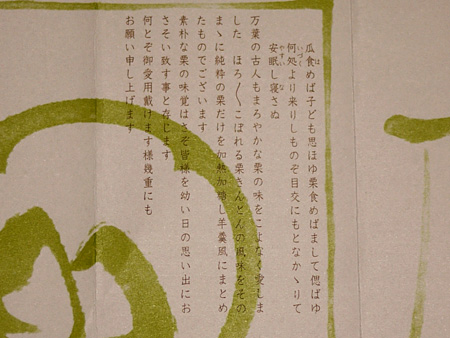 瓜食めば子ども思ほゆ栗食めばまして偲ばゆ
は
何処より来りしものぞ目交にもとなかゝりて
いづく
安眠し寝さぬ
やすい な
万葉の古人もまろやかな栗の味をこよなく愛しま
した ほろ〳〵こぼれる栗きんとんの風味をその
まゝに純粋の栗だけを加糖し羊羹風にまとめ
たものでございます
素朴な栗の味覚はさぞ皆様を幼い日の思い出にお
さそい致す事と存じます
何とぞ御愛用戴けます様幾重にも
お願い申し上げます